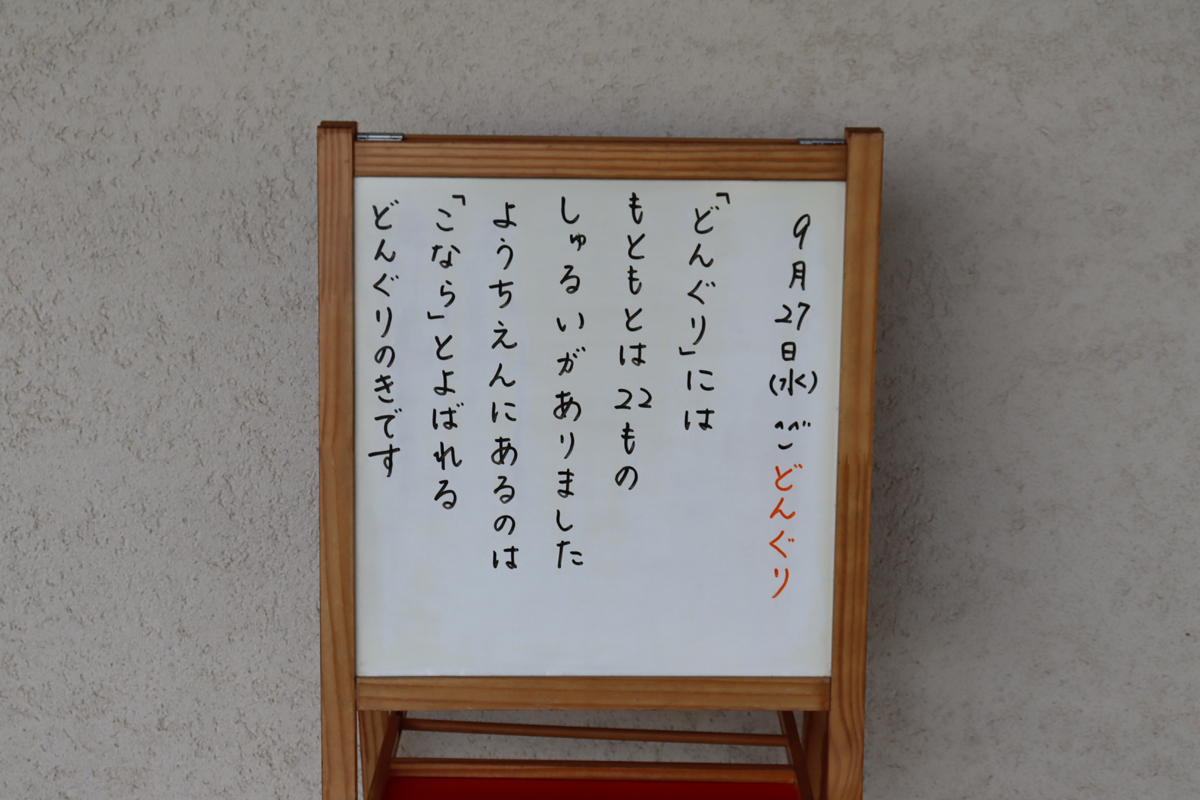 9月27日(水) どんぐり
「どんぐり」には
もともとは22もの
しゅるいがありました
ようちえんにあるのは
「こなら」とよばれる
どんぐりのきです